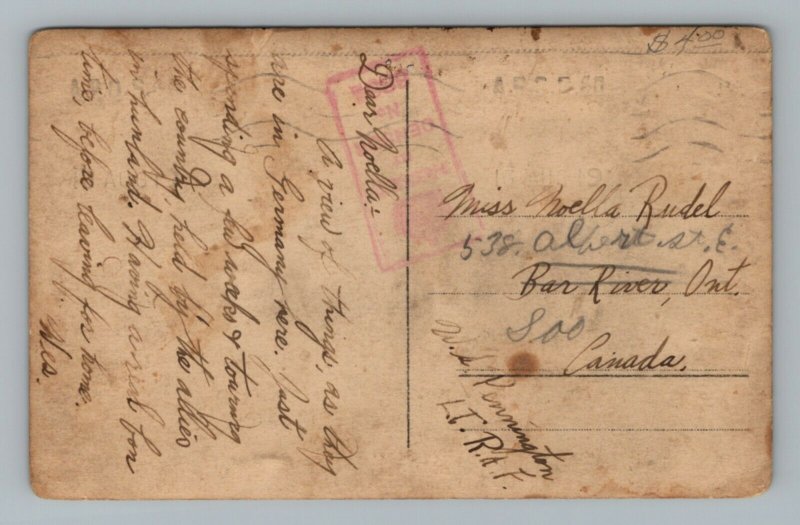 $4.00
Dear Noella:-
A view of things, as they
are in Germany here. Just
spending a few weeks touring
the country held by the allies
in hunland. Having a real bon
time, before leaving for home.
Wes.
Miss Noella Rudel
538. Albert st. E.
Bar River, Ont.
Soo
Canada.
Pennington
LT. R.A.F.